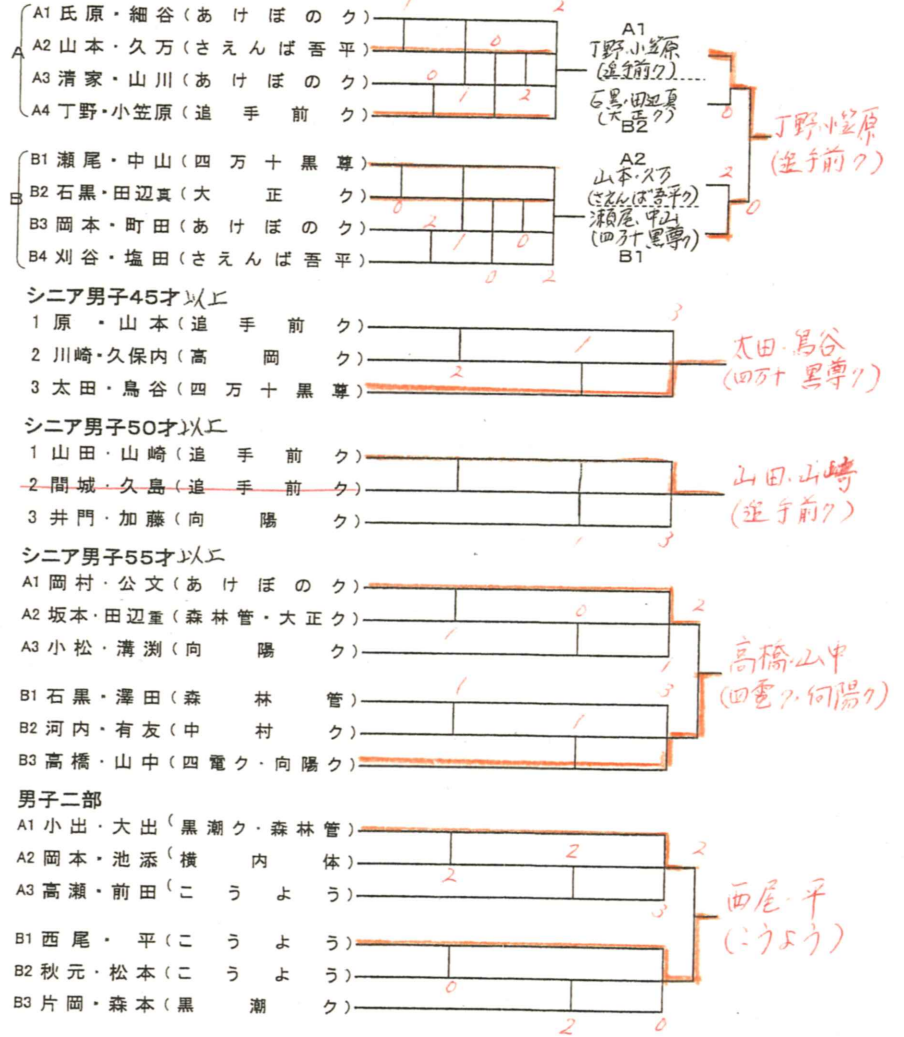 A
A1 氏原・細谷(あけぼのク)
A2 山本・久万(さえんば吾平)
A3 清家・山川(あけぼのク)
A4 丁野・小笠原(追手前ク)
1
2
0
0
1
2
A1
丁野・小笠原
(追手前ク)
石黒・田辺真
(大正ク)
B2
0
丁野・小笠原
(追手前ク)
B
B1 瀬尾・中山(四万十黒尊)
B2 石黒・田辺真(大正ク)
B3 岡本・町田(あけぼのク)
B4 刈谷・塩田(さえんば吾平)
0
2
1
0
0
2
A2
山本・久万
(さえんば吾平ク)
瀬尾・中山
(四万十黒尊ク)
B1
2
0
シニア男子45才以上
1 原・山本(追手前ク)
2 川崎・久保内(高岡ク)
3 太田・鳥谷(四万十黒尊)
3
1
2
太田・鳥谷
(四万十黒尊ク)
シニア男子50才以上
1 山田・山崎(追手前ク)
2 間城・久島(追手前ク)
3 井門・加藤(向陽ク)
1
3
山田・山崎
(追手前ク)
シニア男子55才以上
A1 岡村・公文(あけぼのク)
A2 坂本・田辺重(森林管・大正ク)
A3 小松・溝渕(向陽ク)
0
1
1
2
B1 石黒・澤田(森林管)
B2 河内・有友(中村ク)
B3 高橋・山中(四電ク・向陽ク)
1
3
1
高橋・山中
(四電ク・向陽ク)
男子二部
A1 小出・大出(黒潮ク・森林管)
A2 岡本・池添(横内体)
A3 高瀬・前田(こうよう)
2
2
3
2
B1 西尾・平(こうよう)
B2 秋元・松本(こうよう)
B3 片岡・森本(黒潮ク)
0
2
0
西尾・平
(こうよう)